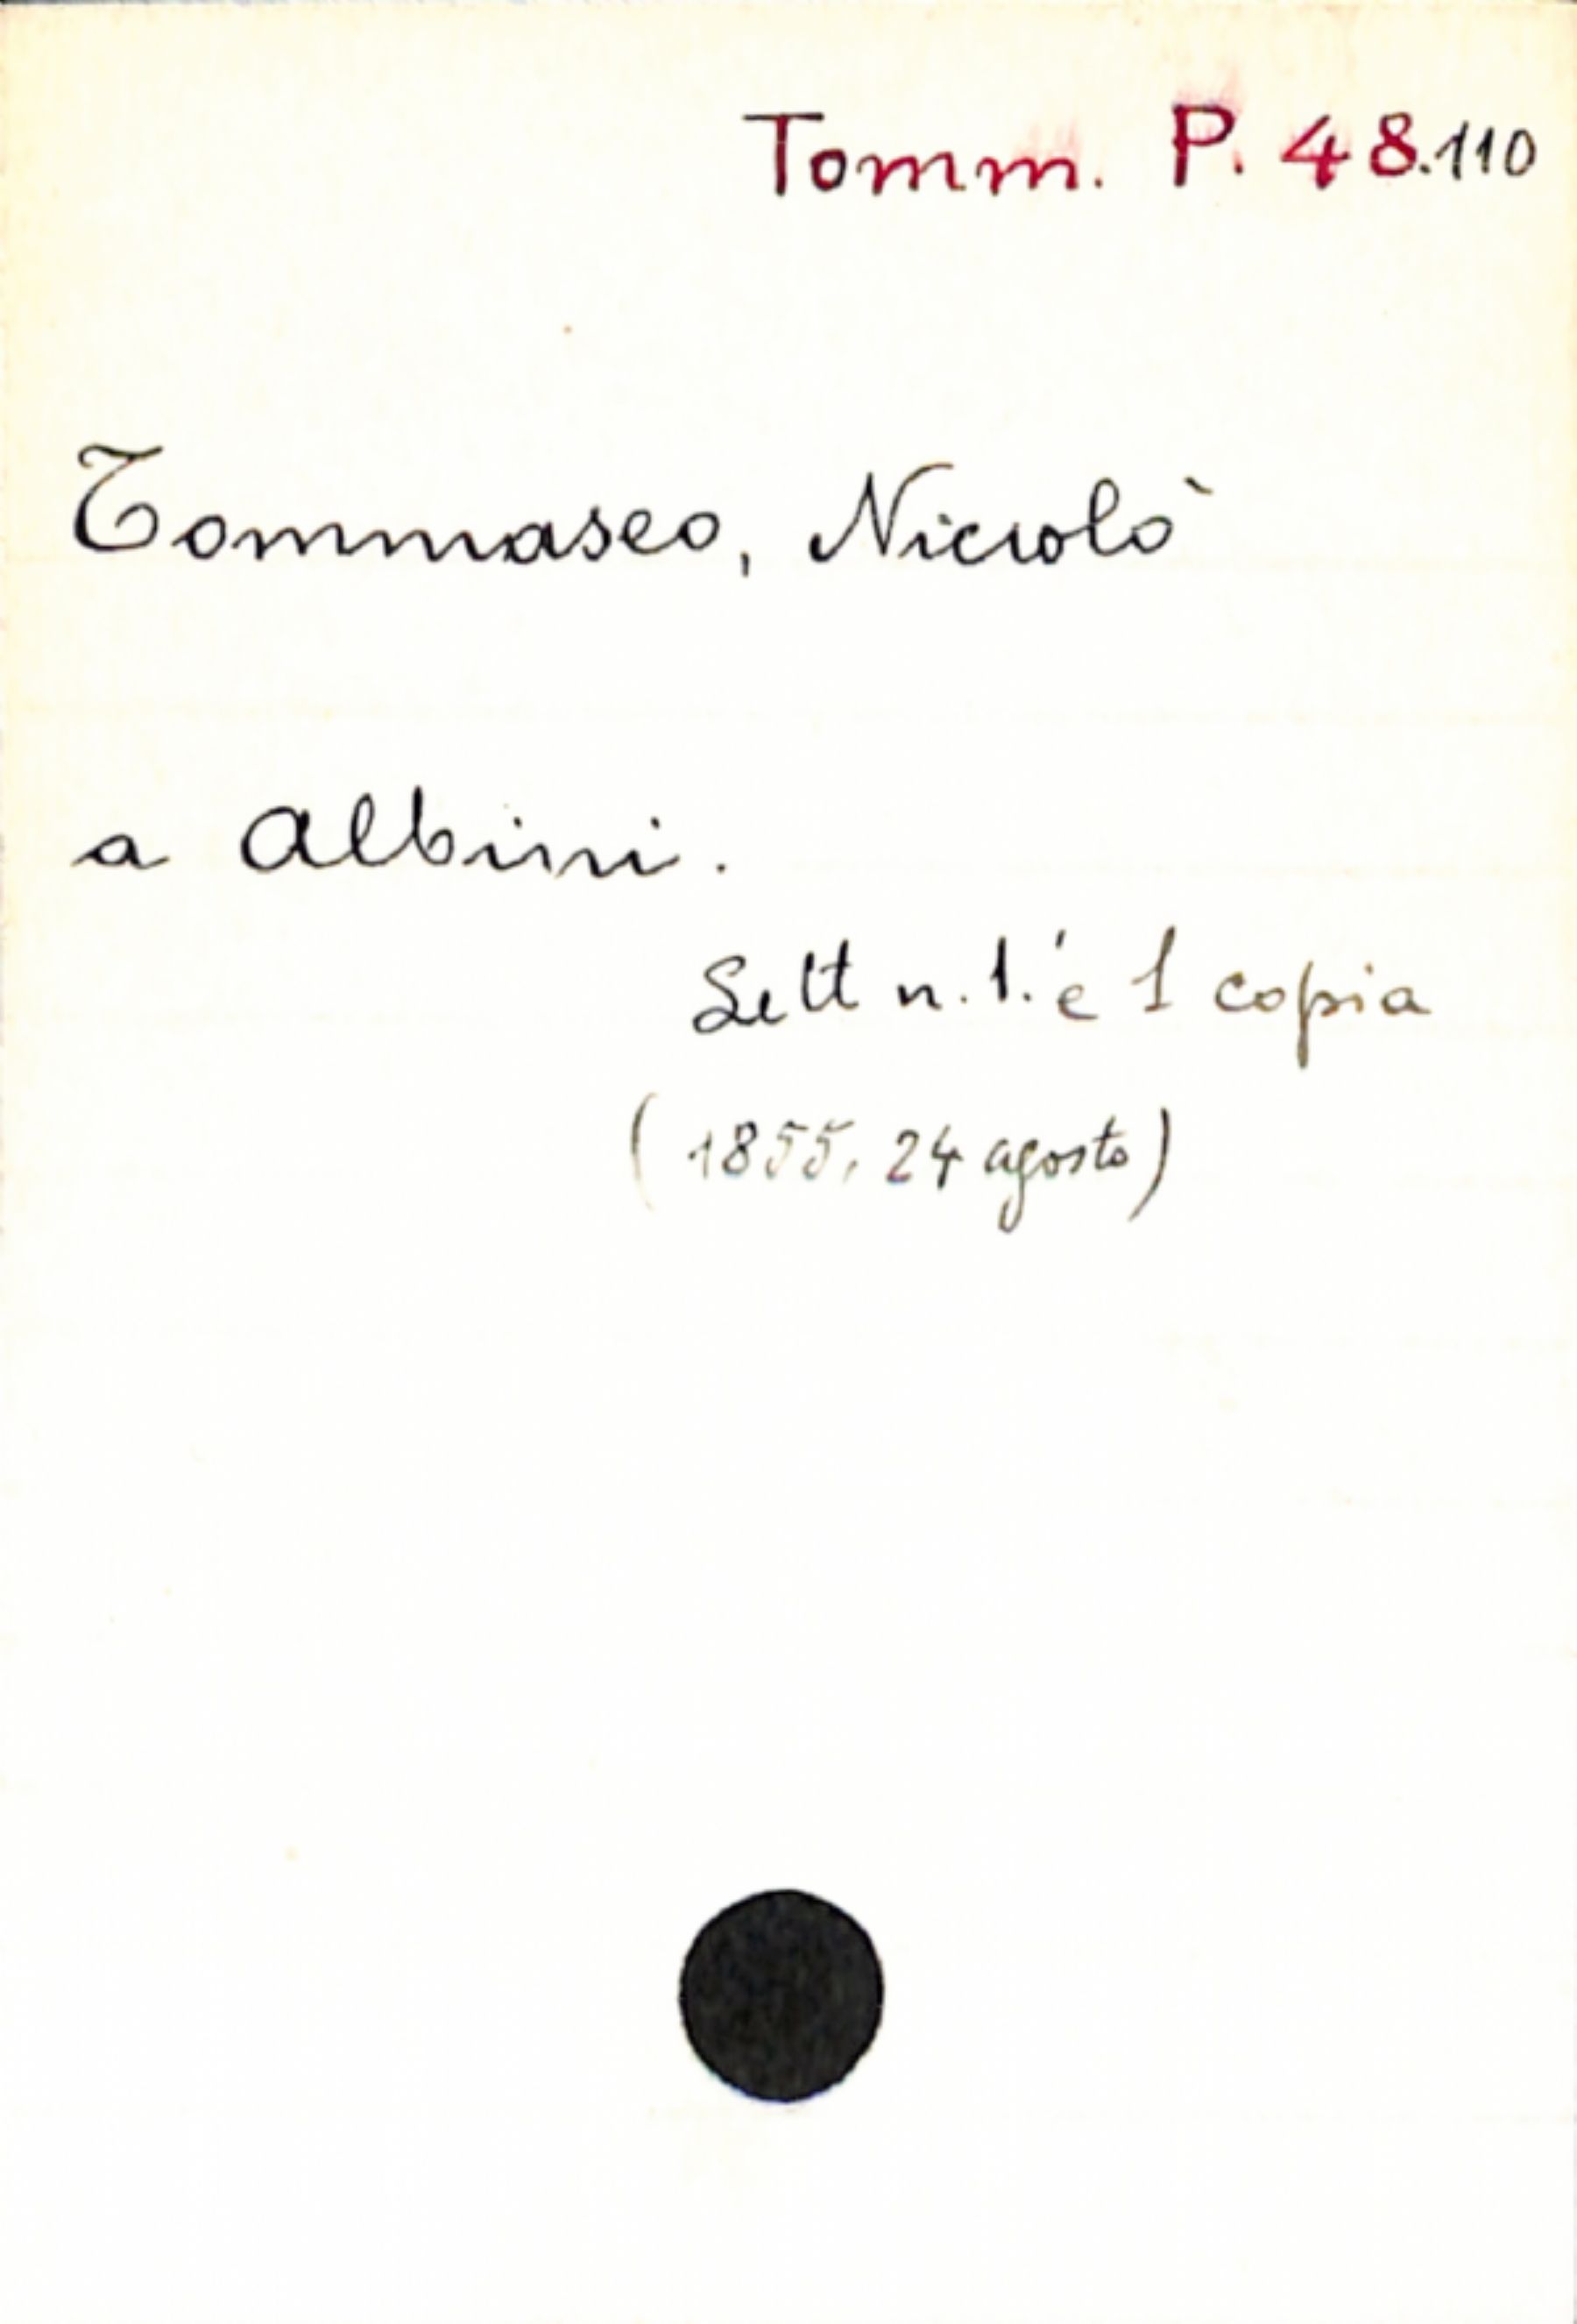 Tomm. P. 48.110
Tommaseo, Niccolò
a Albini.
Lett n. 1. e 1 copia
(1855, 24 agosto)